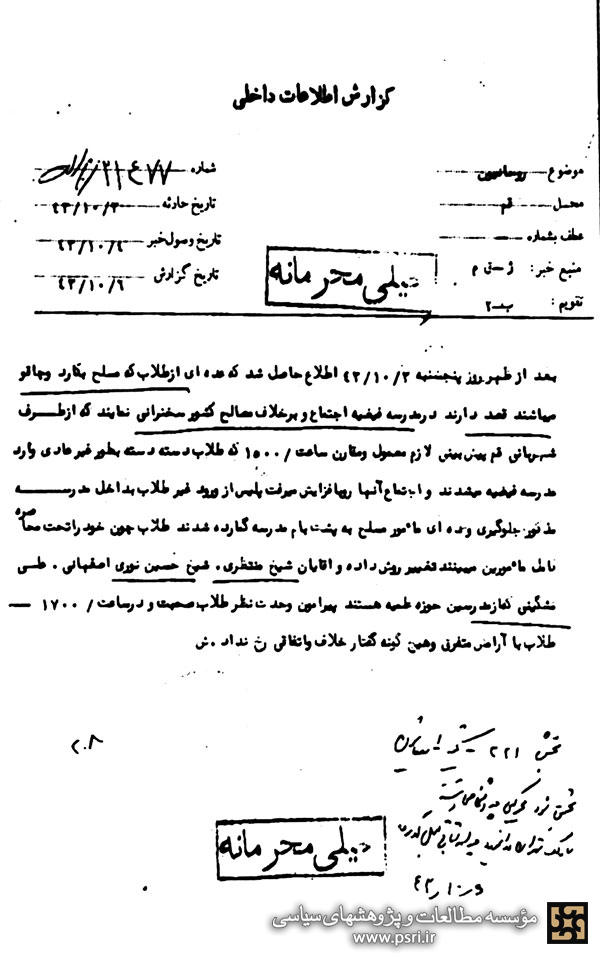 گزارش اطلاعات داخلی
موضوع روحانیون
محل قم
عطف بشماره
منبع خبر: ژ-ق م
تقویم: ب-۲
شماره ۲۱۴۷۷
تاریخ حادثه ۴۳/۱۰/۳
تاریخ وصول خبر ۴۳/۱۰/۴
تاریخ گزارش ۴۳/۱۰/۶
خیلی محرمانه
بعد از ظهر روز پنجشنبه ۴۳/۱۰/۳ اطلاع حاصل شد که عده ای از طلاب که مسلح بکارد وچاقو
میباشند قصد دارند در مدرسه فیضیه اجتماع و بر خلاف مصالح کشور سخنرانی نمایند که از طرف
شهربانی قم پیش بینی لازم معمول ومقارن ساعت /۱۵۰۰ که طلاب دسته دسته بطور غیر عادی وارد
مدرسه فیضیه میشدند و اجتماع آنها روبافزایش میرفت پلیس از ورود غیر طلاب بداخل مدرسه
مذکور جلوگیری وعده ای مأمور مسلح به پشت بام مدرسه گمارده شدند طلاب چون خود را تحت محاصره
کامل مأمورین میبینند تغییر روش داده و اقایان شیخ منتظری. شیخ حسین نوری اصفهانی. علی
مشگینی که از مدرسین حوزه علمیه هستند پیرامون وحدت نظر طلاب صحبت و در ساعت /۱۷۰۰
طلاب با آرامش متفرق وهیچ گونه گفتار خلاف واتفاقی رخ نداد. ش
۲۰۸
بخش ۲۲۱
۴۳
خیلی محرمانه
مؤسسه مطالعات و پژوهشهای سیاسی
www.psri.ir